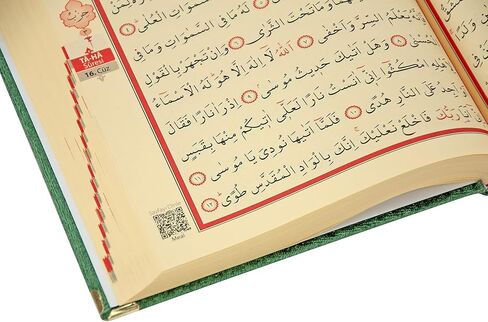 السَّمٰوَاتِ الْعُلٰى ﴿٤﴾
لَهُ مَا فِي السَّمٰوَاتِ وَمَا فِي
وَمَا تَحْتَ الثَّرٰى ﴿٦﴾ وَاِنْ تَجْهَرْ بِالْقَوْلِ
يَعْلَمُ السِّرَّ وَاَخْفٰى ﴿٧﴾ اَللّٰهُ لَا اِلٰهَ اِلَّا هُوَ لَهُ الْاَسْمَاءُ
الْحُسْنٰى ﴿٨﴾ وَهَلْ اَتٰيكَ حَد۪يثُ مُوسٰى ﴿٩﴾ اِذْ رَاٰ نَارًا فَقَالَ
امْكُثُوا اِنّ۪ي اٰنَسْتُ نَارًا لَعَلّ۪ي اٰت۪يكُمْ مِنْهَا بِقَبَسٍ
اَجِدُ عَلَى النَّارِ هُدًى ﴿١٠﴾ فَلَمَّا اَتٰيهَا نُودِيَ يَا مُوسٰى ﴿١١﴾
اَنَا رَبُّكَ فَاخْلَعْ نَعْلَيْكَ اِنَّكَ بِالْوَادِ الْمُقَدَّسِ طُوًى ﴿١٢﴾
TÂ-HÂ
Sûresi
16. Cüz
Meal